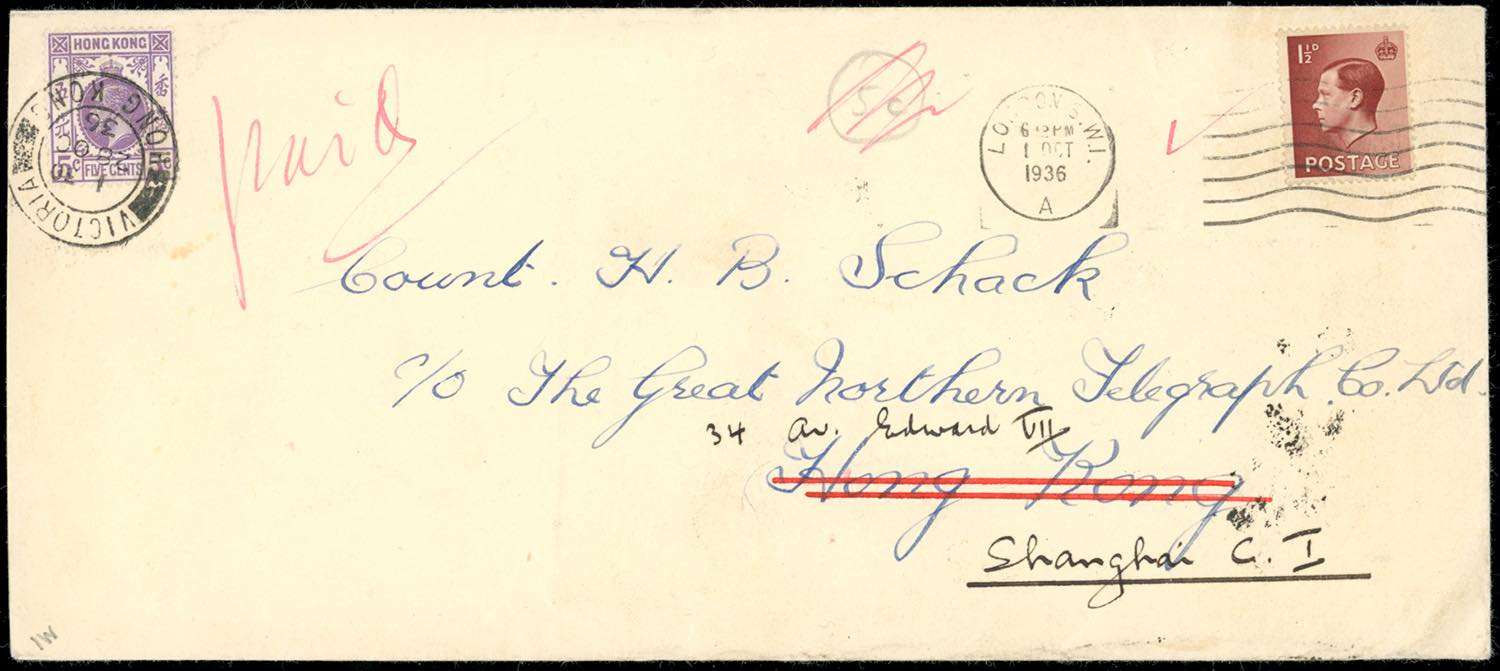 HONG KONG
5c FIVE CENTS
VICTORIA
HONG KONG
28 OC
36
paid
5c
LONDON S.W.1.
PM
1 OCT
1936
A
1½D
POSTAGE
Count. H. B. Schack
c/o The Great Northern Telegraph Co. Ltd.
34 Av. Edward VII
Hong Kong
Shanghai C. I
1W